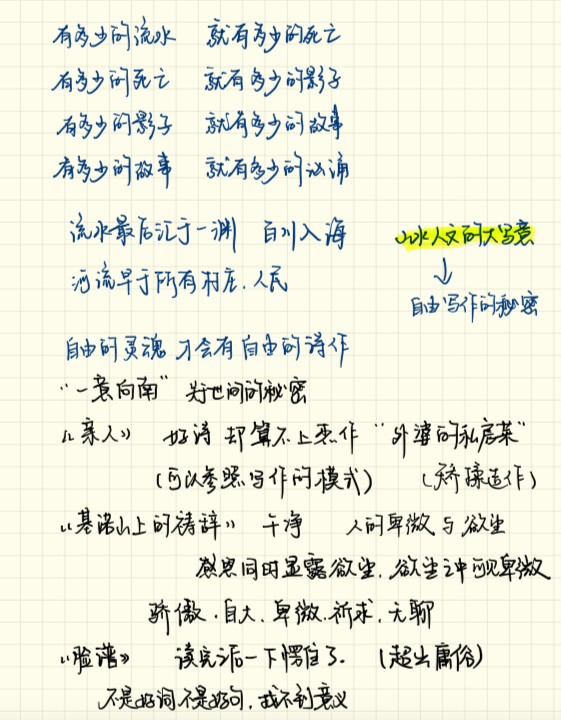 有多少的流水 就有多少的死亡
有多少的死亡 就有多少的影子
有多少的影子 就有多少的故事
有多少的故事 就有多少的汹涌
流水最后汇于一渊 百川入海
山水人文的大写意
河流早于所有村庄、人民
↓
自由写作的秘密
自由的灵魂 才会有自由的诗作
“一意向南” 关世间的秘密
《亲人》 好诗 却算不上杰作 “外婆的私房菜”
(可以参照写作的模式) (矫揉造作)
《基诺山上的祷辞》 干净 人的卑微与欲望
感恩同时显露欲望,欲望之中可见卑微
骄傲、自大、卑微、祈求、无聊
《脸谱》 读完后一下愣住了. (超出庸俗)
不是好词不是好句,找不到意义